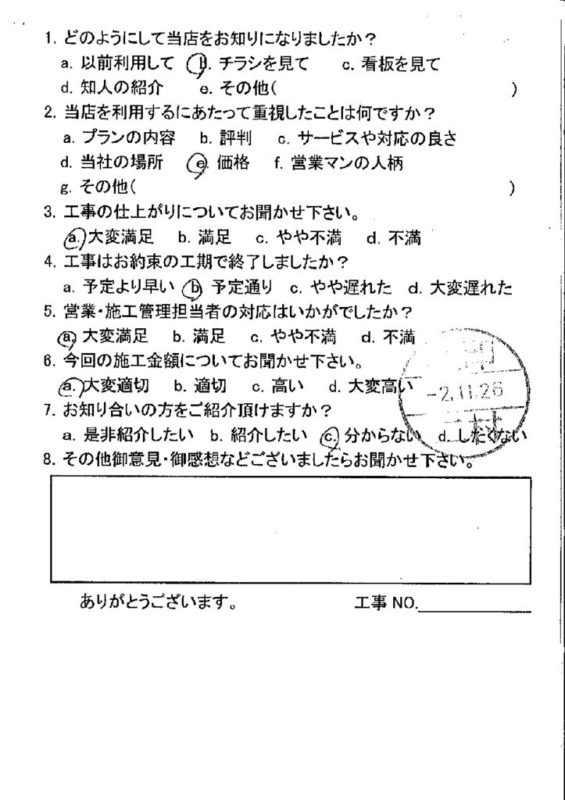 1. どのようにして当店をお知りになりましたか?
a. 以前利用して b. チラシを見て c. 看板を見て
d. 知人の紹介 e. その他( )
2. 当店を利用するにあたって重視したことは何ですか?
a. プランの内容 b. 評判 c. サービスや対応の良さ
d. 当社の場所 e. 価格 f. 営業マンの人柄
g. その他( )
3. 工事の仕上がりについてお聞かせ下さい。
a. 大変満足 b. 満足 c. やや不満 d. 不満
4. 工事はお約束の工期で終了しましたか?
a. 予定より早い b. 予定通り c. やや遅れた d. 大変遅れた
5. 営業・施工管理担当者の対応はいかがでしたか?
a. 大変満足 b. 満足 c. やや不満 d. 不満
6. 今回の施工金額についてお聞かせ下さい。
a. 大変適切 b. 適切 c. 高い d. 大変高い
-2.11.26
7. お知り合いの方をご紹介頂けますか?
a. 是非紹介したい b. 紹介したい c. 分からない d. したくない
8. その他御意見・御感想などございましたらお聞かせ下さい。
ありがとうございます。 工事 NO.